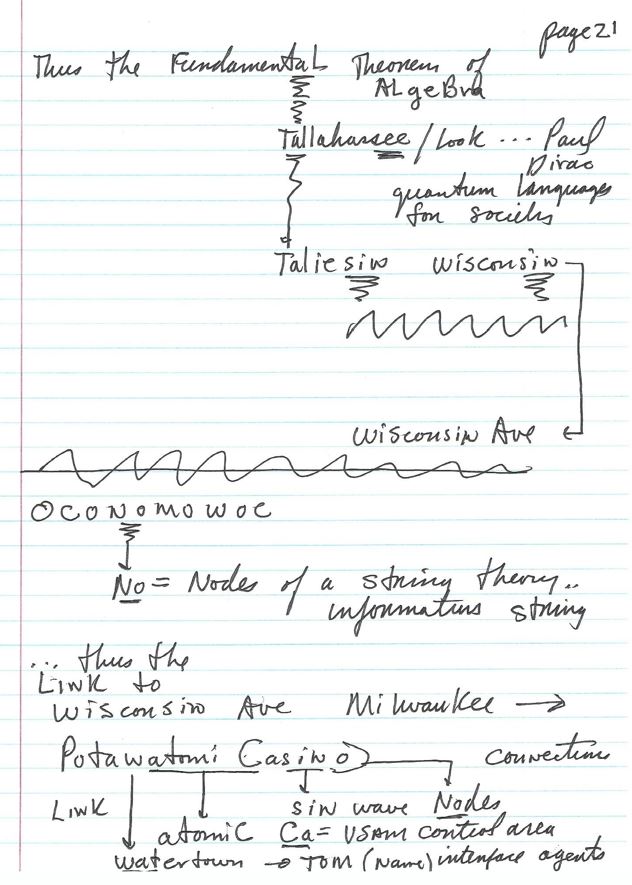 page 21
Thus the FundamentaL Theorem of
ALgeBra
Tallahassee / Look ... Paul
Dirac
quantum Languages
for society
Taliesin Wisconsin
Wisconsin Ave
OCONOMOWOC
No = Nodes of a string theory..
informations string
... thus the
Link to
Wisconsin Ave Milwaukee →
Potawatomi Casino connections
Link sin wave Nodes
atomic Ca = USAM control area
watertown → TOM (Name) interface agents